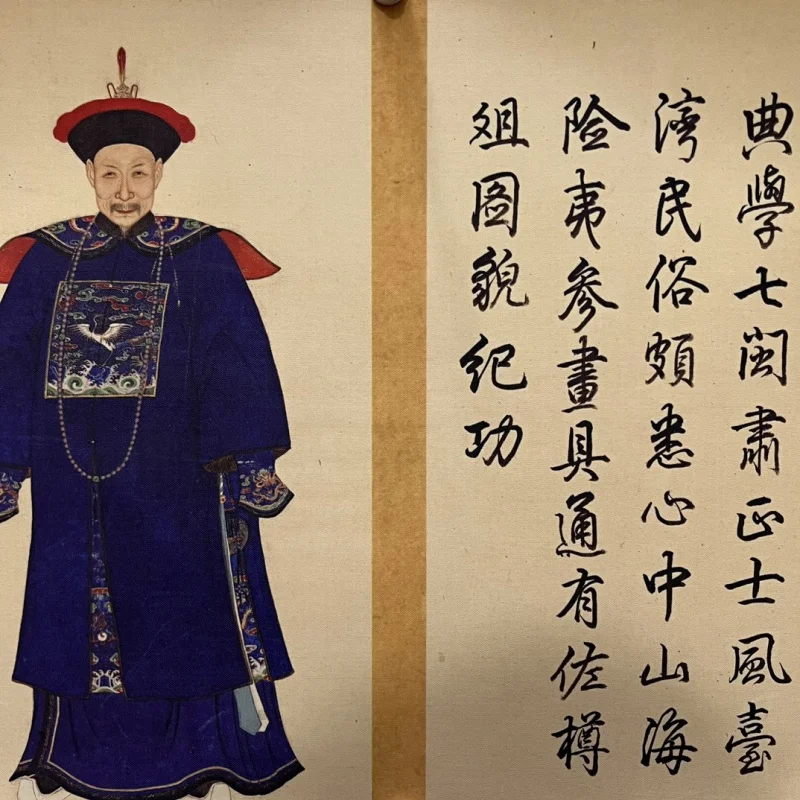 典學七閩肅正士風臺
灣民俗頗悉心中山海
險夷參畫具通有佐樽
俎圖貌紀功